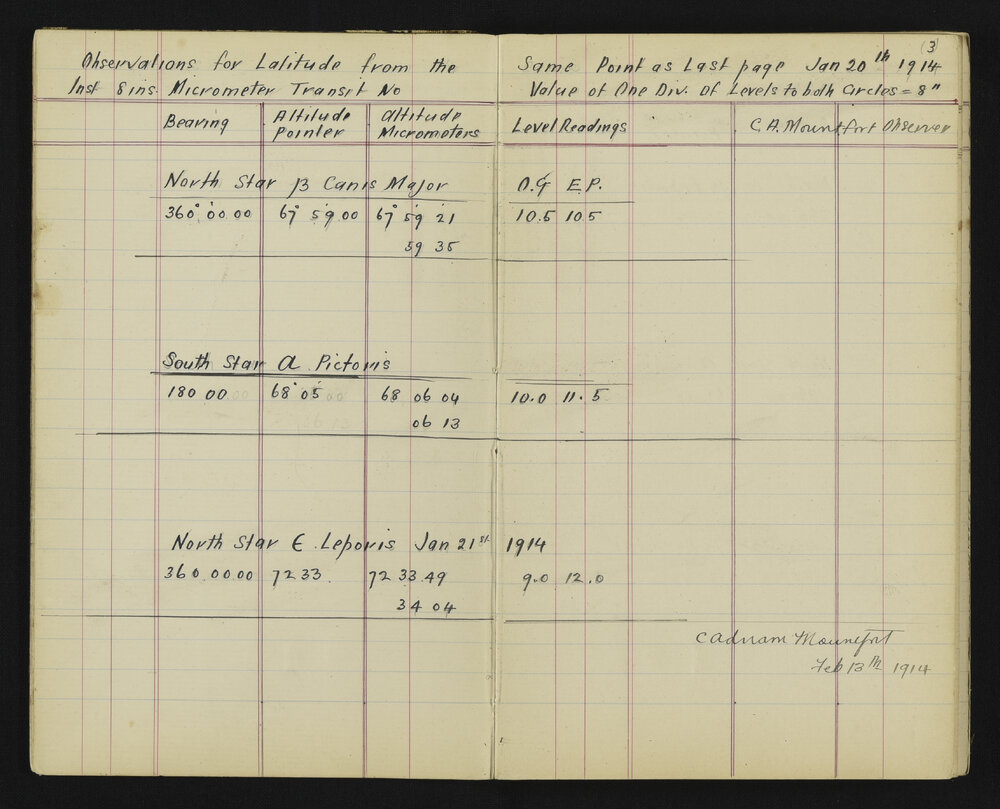 (3)
Observations for Latitude from the Same Point as Last page Jan 20th 1914
Inst 8 ins. Micrometer Transit No Value of One Div. of Levels to both Circles = 8"
Bearing Altitude Pointer Altitude Micrometers Level Readings C.A. Mountfort Observer
North Star β Canis Major O.G E.P.
360° 00 00 67° 59 00 67° 59 21 10.5 10.5
59 35
South Star α Pictoris
180 00 68° 05 68 06 04 10.0 11.5
06 13
North Star ε Leporis Jan 21st 1914
360 00 00 72 33 72 33 49 9.0 12.0
34 04
C Adnam Mountfort
Feb 13th 1914